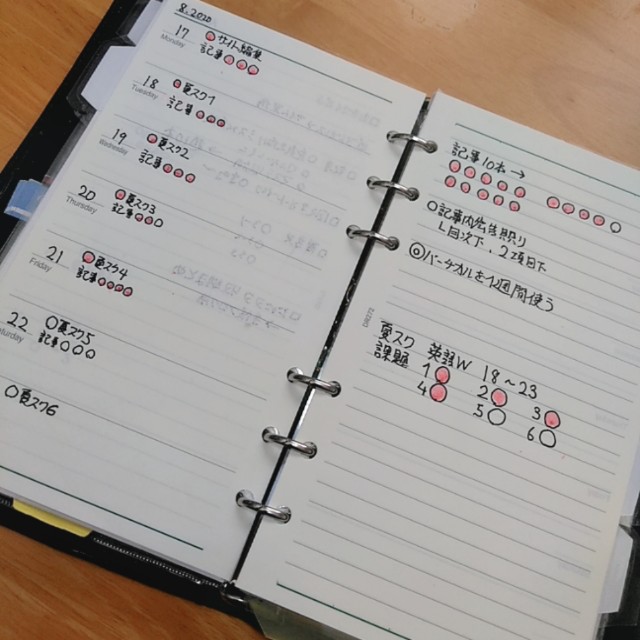 8.2020
17
Monday
サイト編集
記事
18
Tuesday
夏スク1
記事
19
Wednesday
夏スク2
記事
20
Thursday
夏スク3
記事
21
Friday
夏スク4
記事
22
Saturday
夏スク5
記事
夏スク6
記事10本→
記事内広告貼り
L目次下、2項目下
バーチカルを1週間使う
夏スク 英語W 18～23
課題 1 2 3
4 5 6